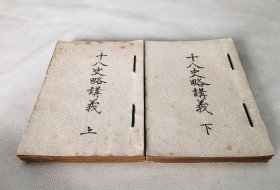 十八史略講義 上
十八史略講義 下